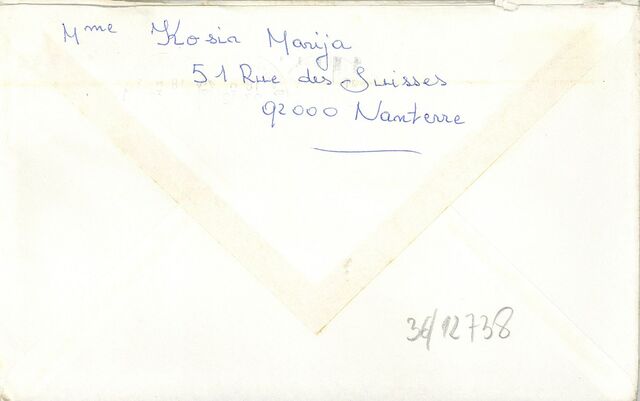 Mme Kosir Marija
51 Rue des Suisses
92000 Nanterre
36/12738